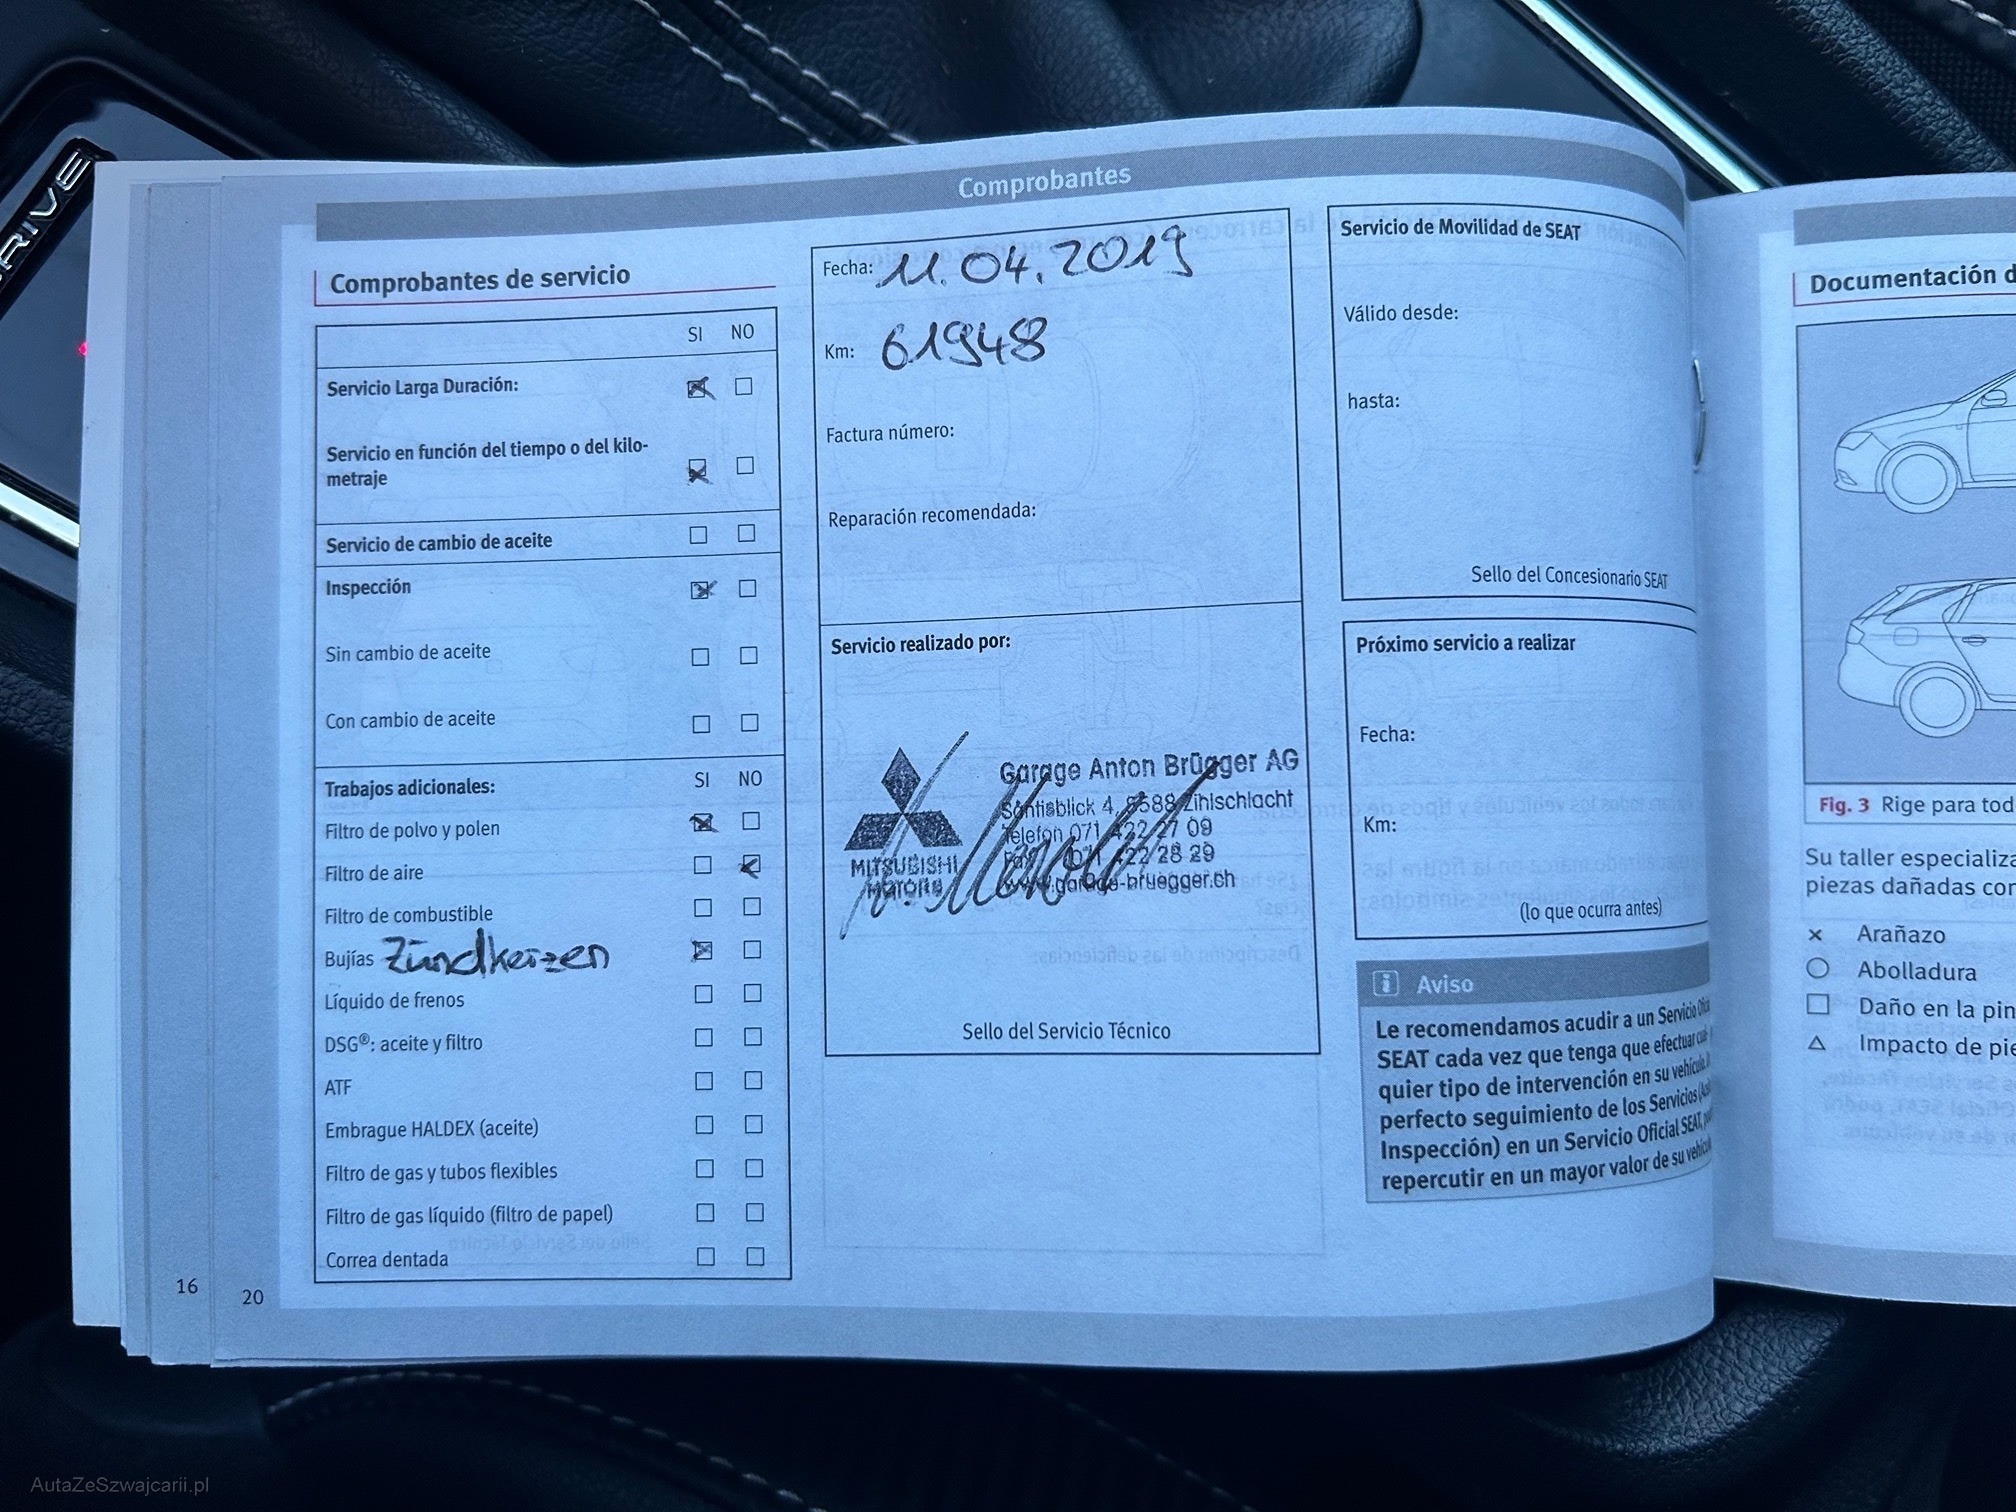 DRIVE
Comprobantes
Comprobantes de servicio
SI NO
Servicio Larga Duración:
Servicio en función del tiempo o del kilo-
metraje
Servicio de cambio de aceite
Inspección
Sin cambio de aceite
Con cambio de aceite
Trabajos adicionales: SI NO
Filtro de polvo y polen
Filtro de aire
Filtro de combustible
Bujías Zündkerzen
Líquido de frenos
DSG®: aceite y filtro
ATF
Embrague HALDEX (aceite)
Filtro de gas y tubos flexibles
Filtro de gas líquido (filtro de papel)
Correa dentada
16
20
Fecha: 11.04.2019
Km: 61948
Factura número:
Reparación recomendada:
Servicio realizado por:
MITSUBISHI
MOTORS
Garage Anton Brügger AG
Säntisblick 4, 8588 Zihlschlacht
Telefon 071 422 27 09
Fax 071 422 28 29
www.garage-bruegger.ch
Sello del Servicio Técnico
Servicio de Movilidad de SEAT
Válido desde:
hasta:
Sello del Concesionario SEAT
Próximo servicio a realizar
Fecha:
Km:
(lo que ocurra antes)
i Aviso
Le recomendamos acudir a un Servicio
SEAT cada vez que tenga que efectuar
quier tipo de intervención en su vehículo.
perfecto seguimiento de los Servicios
Inspección) en un Servicio Oficial SEAT,
repercutir en un mayor valor de su
Documentación d
Fig. 3 Rige para tod
Su taller especializa
piezas dañadas con
× Arañazo
Abolladura
Daño en la pin
Impacto de pie
AutaZeSzwajcarii.pl